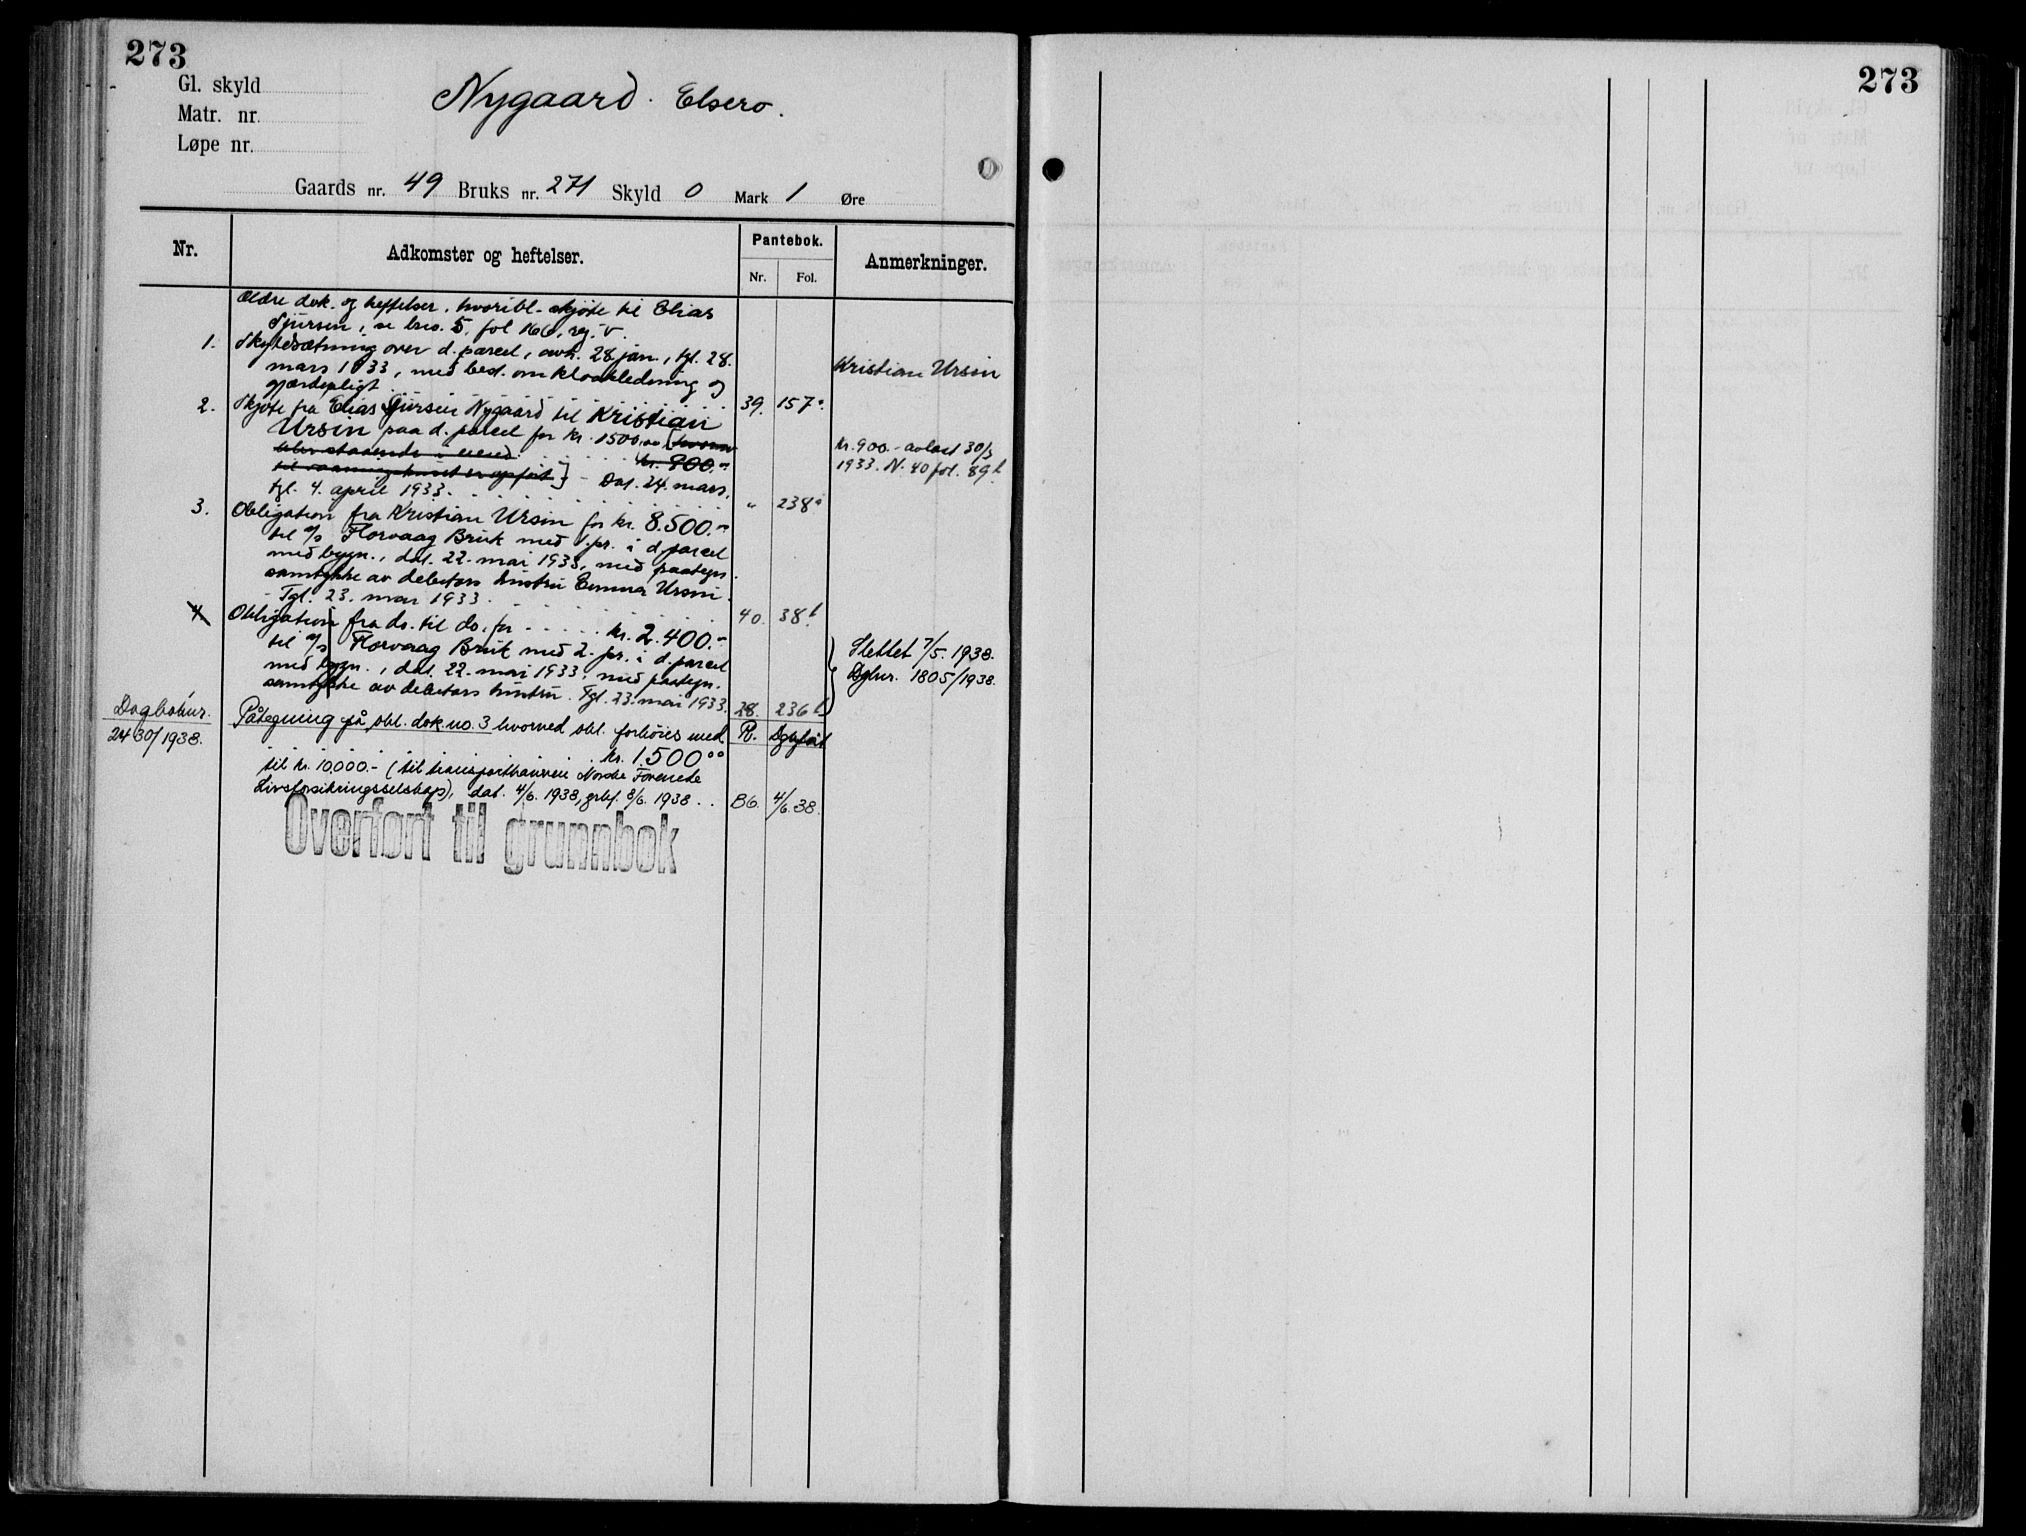 273
Gl. skyld
Matr. nr.
Løpe nr.
Nygaard. Elsero.
Gaards nr. 49 Bruks nr. 271 Skyld 0 Mark 1 Øre
Nr.
Adkomster og heftelser.
Pantebok.
Nr. Fol.
Anmerkninger.
Ældre dok. og heftelser, hvoribl. skjøte til Elias
Sjursen, se bres. 5, fol 166, reg. v.
1. Skyldsætning over d. parcel, avh. 28 jan., tgl. 28.
mars 1933, med best. om kloakledning og
gjærdepligt 39. 157a.
Kristian Ursin
2. Skjøte fra Elias Sjursen Nygaard til Kristian
Ursin paa d. parcel for kr. 1500,00 [hvorav
blir staaende i eiend. kr. 900.-
til vaaningshuset er opført] - Dat. 24. mars,
tgl. 4. april 1933. " 238a
kr. 900.- avløst 30/5
1933. N. 40 fol. 89b
3. Obligation fra Kristian Ursin for kr. 8.500.-
til a/s Florvaag Bruk med 1. pr. i d. parcel
med bygn., dat. 22. mai 1933, med paategn.
samtykke av debitors hustru Emma Ursin.
Tgl. 23. mai 1933. 40. 38b
4. Obligation fra do. til do. for kr. 2.400.-
til a/s Florvaag Bruk med 2. pr. i d. parcel
med bygn., dat. 22. mai 1933, med paategn.
samtykke av debitors hustru. Tgl. 23. mai 1933. 28. 236b
Slettet 7/5. 1938.
Dgbnr. 1805/1938.
Dagboknr.
2430/1938.
Påtegning på obl. dok. no. 3 hvorved obl. forhøies med P. Dgbført
kr. 1500.00
til kr. 10.000.- (til transporthaveren Norske Forenede
Livsforsikringsselskap), dat. 4/6. 1938, 8/6. 1938 . . B6. 4/6. 38.
Overført til grunnbok
273